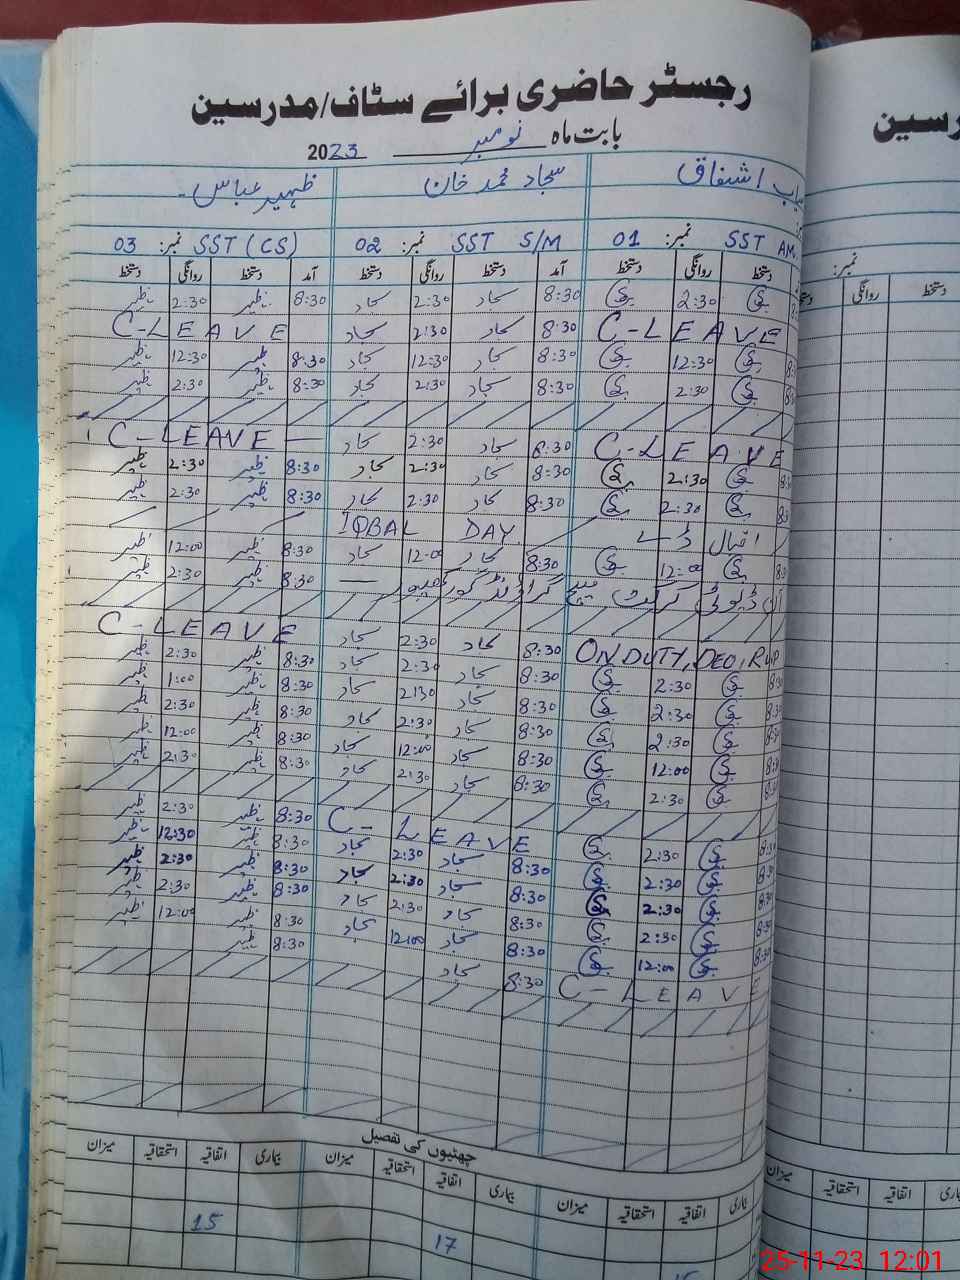 رجسٹر حاضری برائے سٹاف/مدرسین
بابت ماہ نومبر 2023
اشفاق سجاد محمد خان ظہیر عباس
SST نمبر: 01 SST S/M نمبر: 02 SST (CS) نمبر: 03
دستخط روانگی دستخط آمد دستخط روانگی دستخط آمد دستخط روانگی دستخط
2:30 8:30 سجاد 2:30 سجاد 8:30 ظہیر 2:30 ظہیر
C-LEAVE 8:30 سجاد 2:30 سجاد C-LEAVE
12:30 8:30 سجاد 12:30 سجاد 8:30 ظہیر 12:30 ظہیر
2:30 8:30 سجاد 2:30 سجاد 8:30 ظہیر 2:30 ظہیر
C-LEAVE 8:30 سجاد 2:30 سجاد C-LEAVE
2:30 8:30 سجاد 2:30 سجاد 8:30 ظہیر 2:30 ظہیر
2:30 8:30 سجاد 2:30 سجاد 8:30 ظہیر 2:30 ظہیر
اقبال ڈے IQBAL DAY
12:00 8:30 سجاد 12:00 سجاد 8:30 ظہیر 12:00 ظہیر
آن ڈیوٹی کرکٹ میچ گراؤنڈ 8:30 ظہیر 2:30 ظہیر
ON DUTY, DEO, RWP 8:30 سجاد 2:30 سجاد C-LEAVE
2:30 8:30 سجاد 2:30 سجاد 8:30 ظہیر 2:30 ظہیر
2:30 8:30 سجاد 2:30 سجاد 8:30 ظہیر 1:00 ظہیر
2:30 8:30 سجاد 2:30 سجاد 8:30 ظہیر 2:30 ظہیر
12:00 8:30 سجاد 12:00 سجاد 8:30 ظہیر 12:00 ظہیر
2:30 8:30 سجاد 2:30 سجاد 8:30 ظہیر 2:30 ظہیر
2:30 C-LEAVE 8:30 ظہیر 2:30 ظہیر
2:30 8:30 سجاد 2:30 سجاد 8:30 ظہیر 12:30 ظہیر
2:30 8:30 سجاد 2:30 سجاد 8:30 ظہیر 2:30 ظہیر
2:30 8:30 سجاد 2:30 سجاد 8:30 ظہیر 2:30 ظہیر
12:00 8:30 سجاد 12:00 سجاد 8:30 ظہیر 12:00 ظہیر
C-LEAVE 8:30 سجاد 8:30 ظہیر
چھٹیوں کی تفصیل
بیماری اتفاقیہ استحقاقیہ میزان بیماری اتفاقیہ استحقاقیہ میزان بیماری اتفاقیہ استحقاقیہ میزان
15 17 15
رسین
نمبر:
دستخط روانگی دستخط
اتفاقیہ استحقاقیہ میزان
25-11-23 12:01